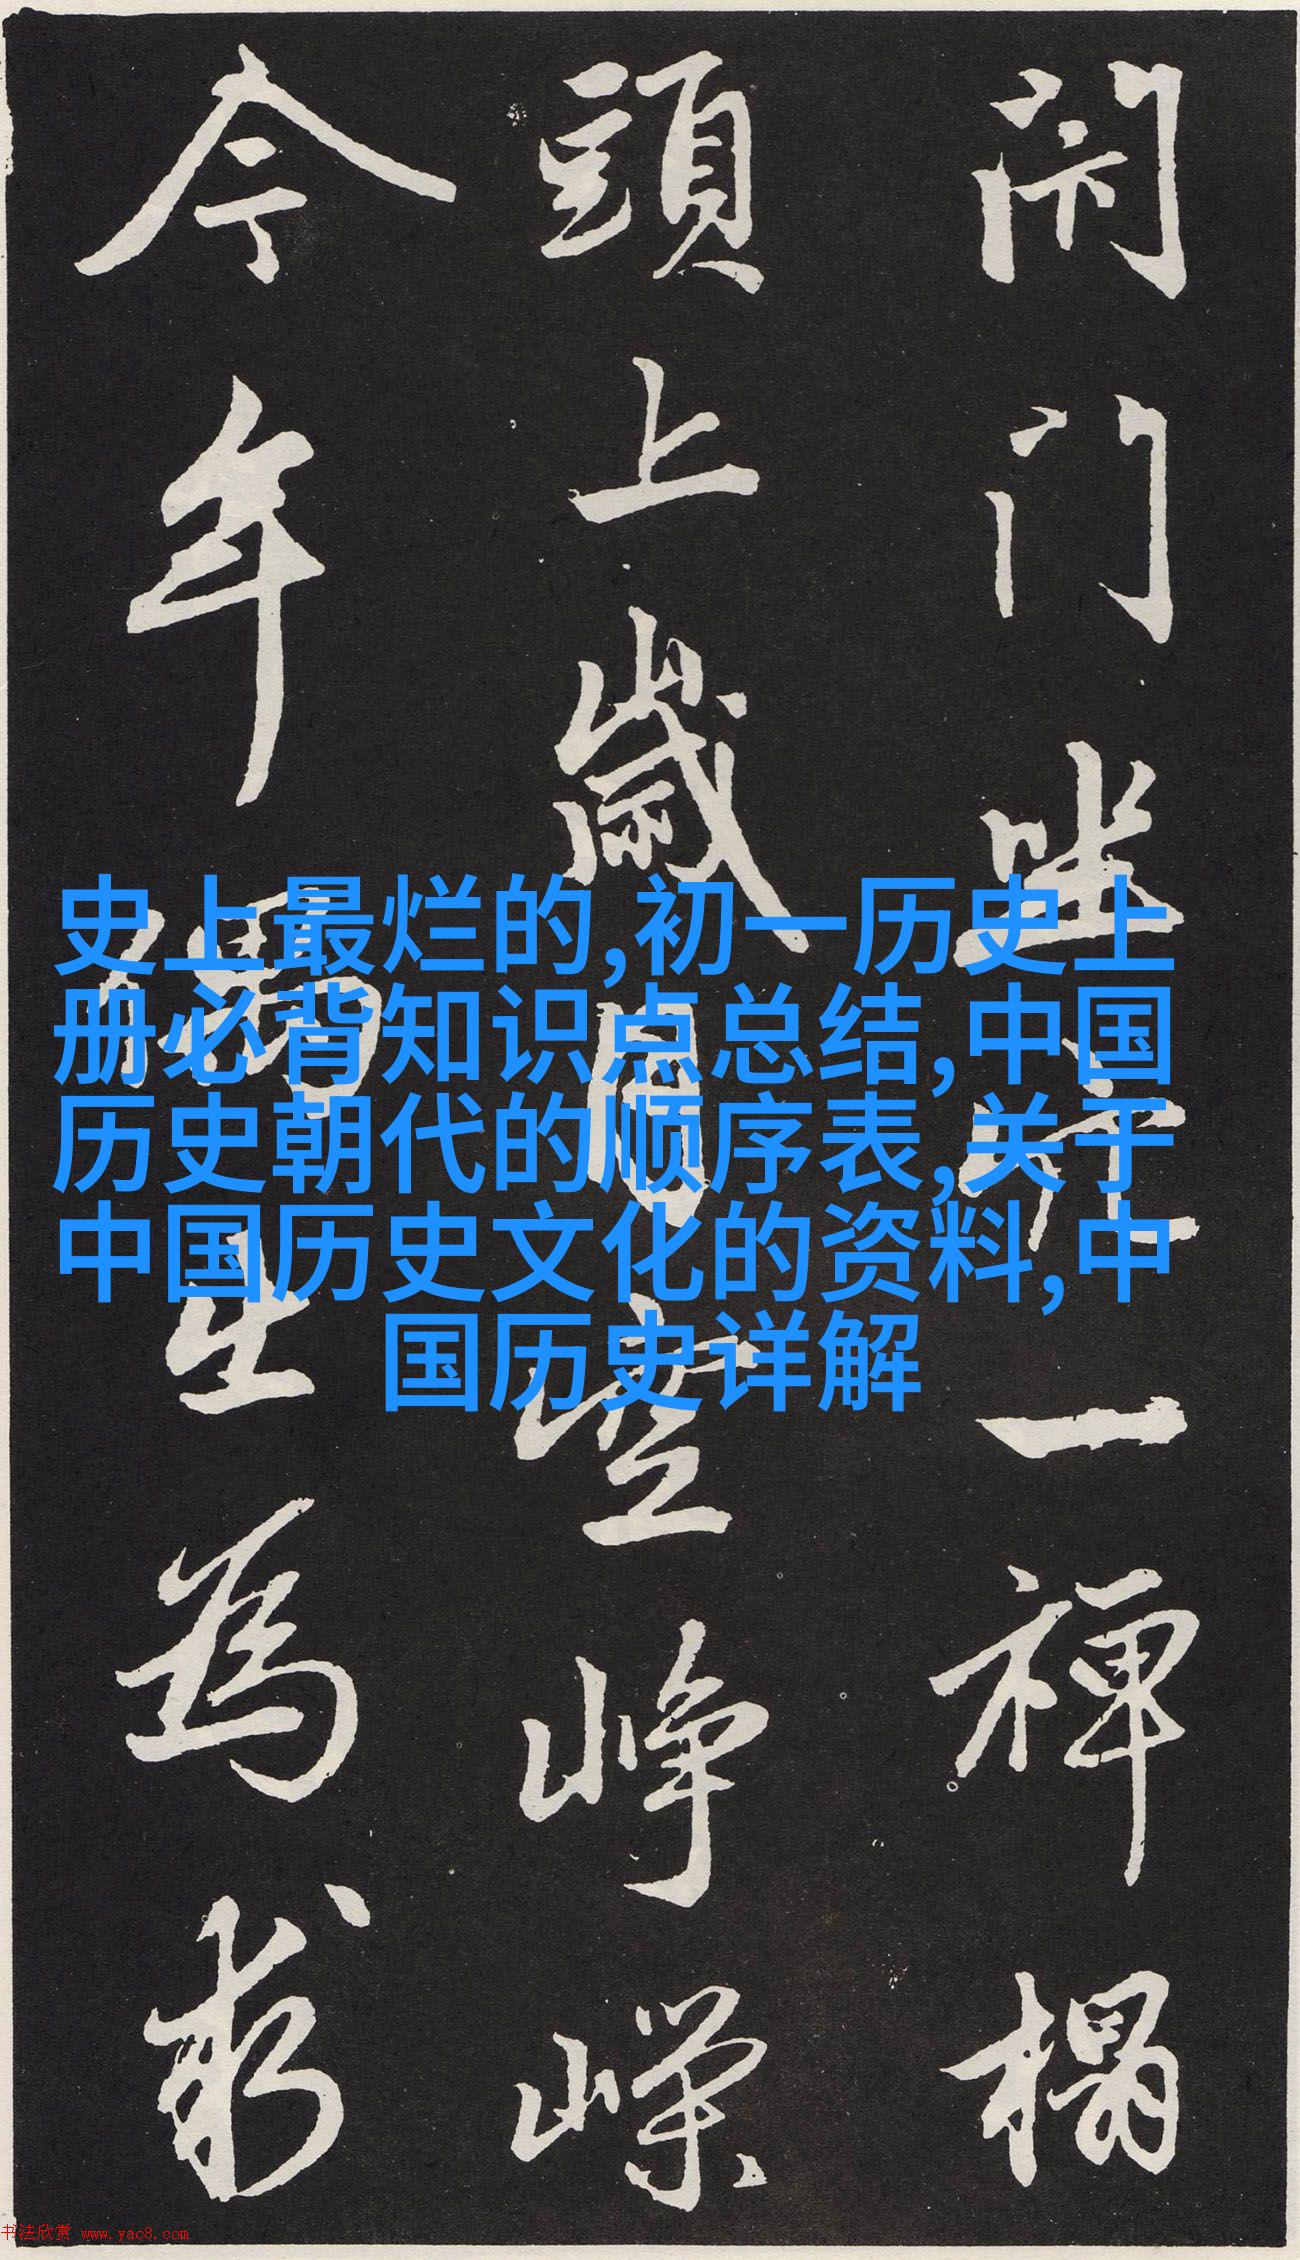 史上最烂的,初一历史上
册必背知识点总结,中国
历史朝代的顺序表,关于
中国历史文化的资料,中
国历史详解
閉門坐穴一禪榻
頭上歲月空崢嶸
今年偶出為求
书法欣赏 www.yac8.com